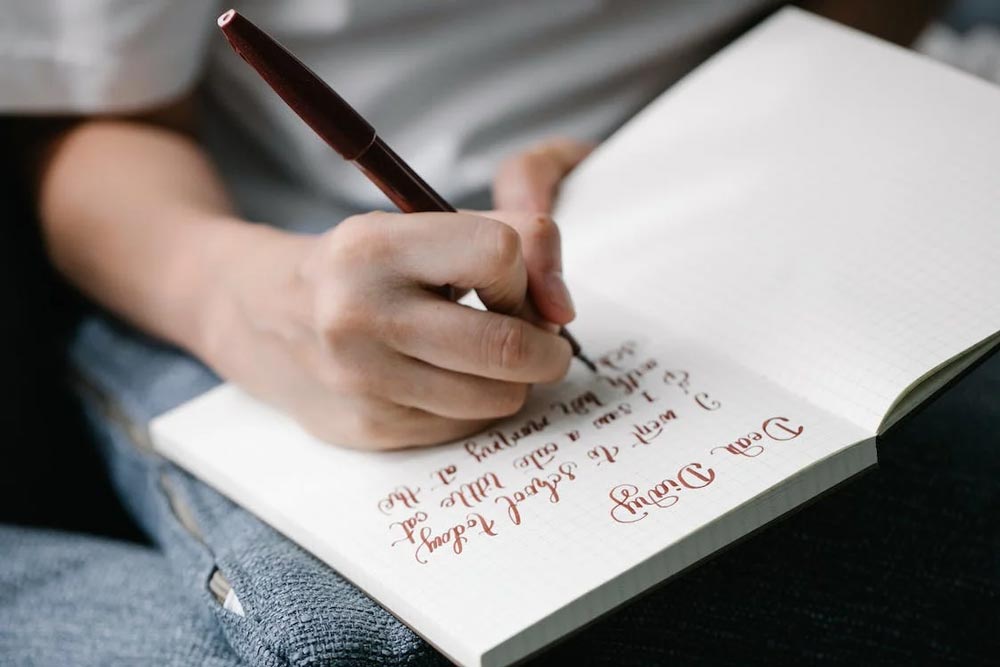 Dear Diary
I went to school today
& I saw a cute little cat,
at the